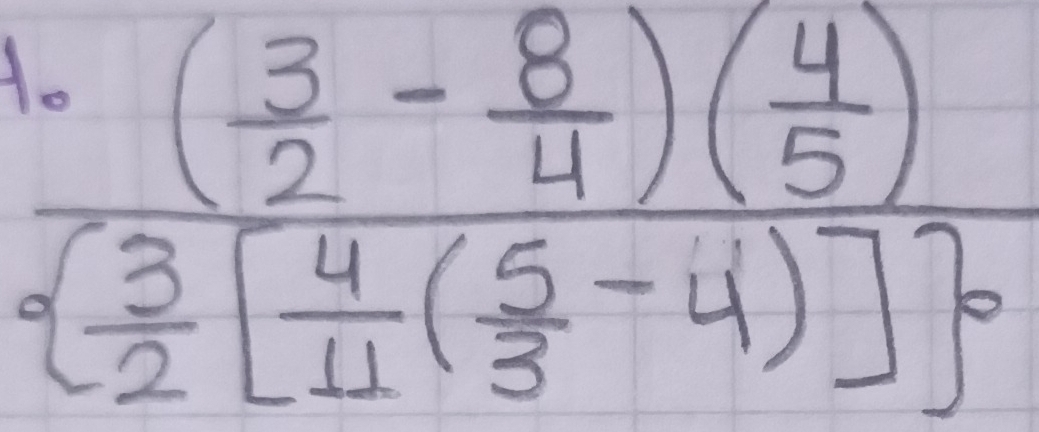 1. (3/2 - 8/4)(4/5)
{3/2 [4/11 (5/3 - 4)]}